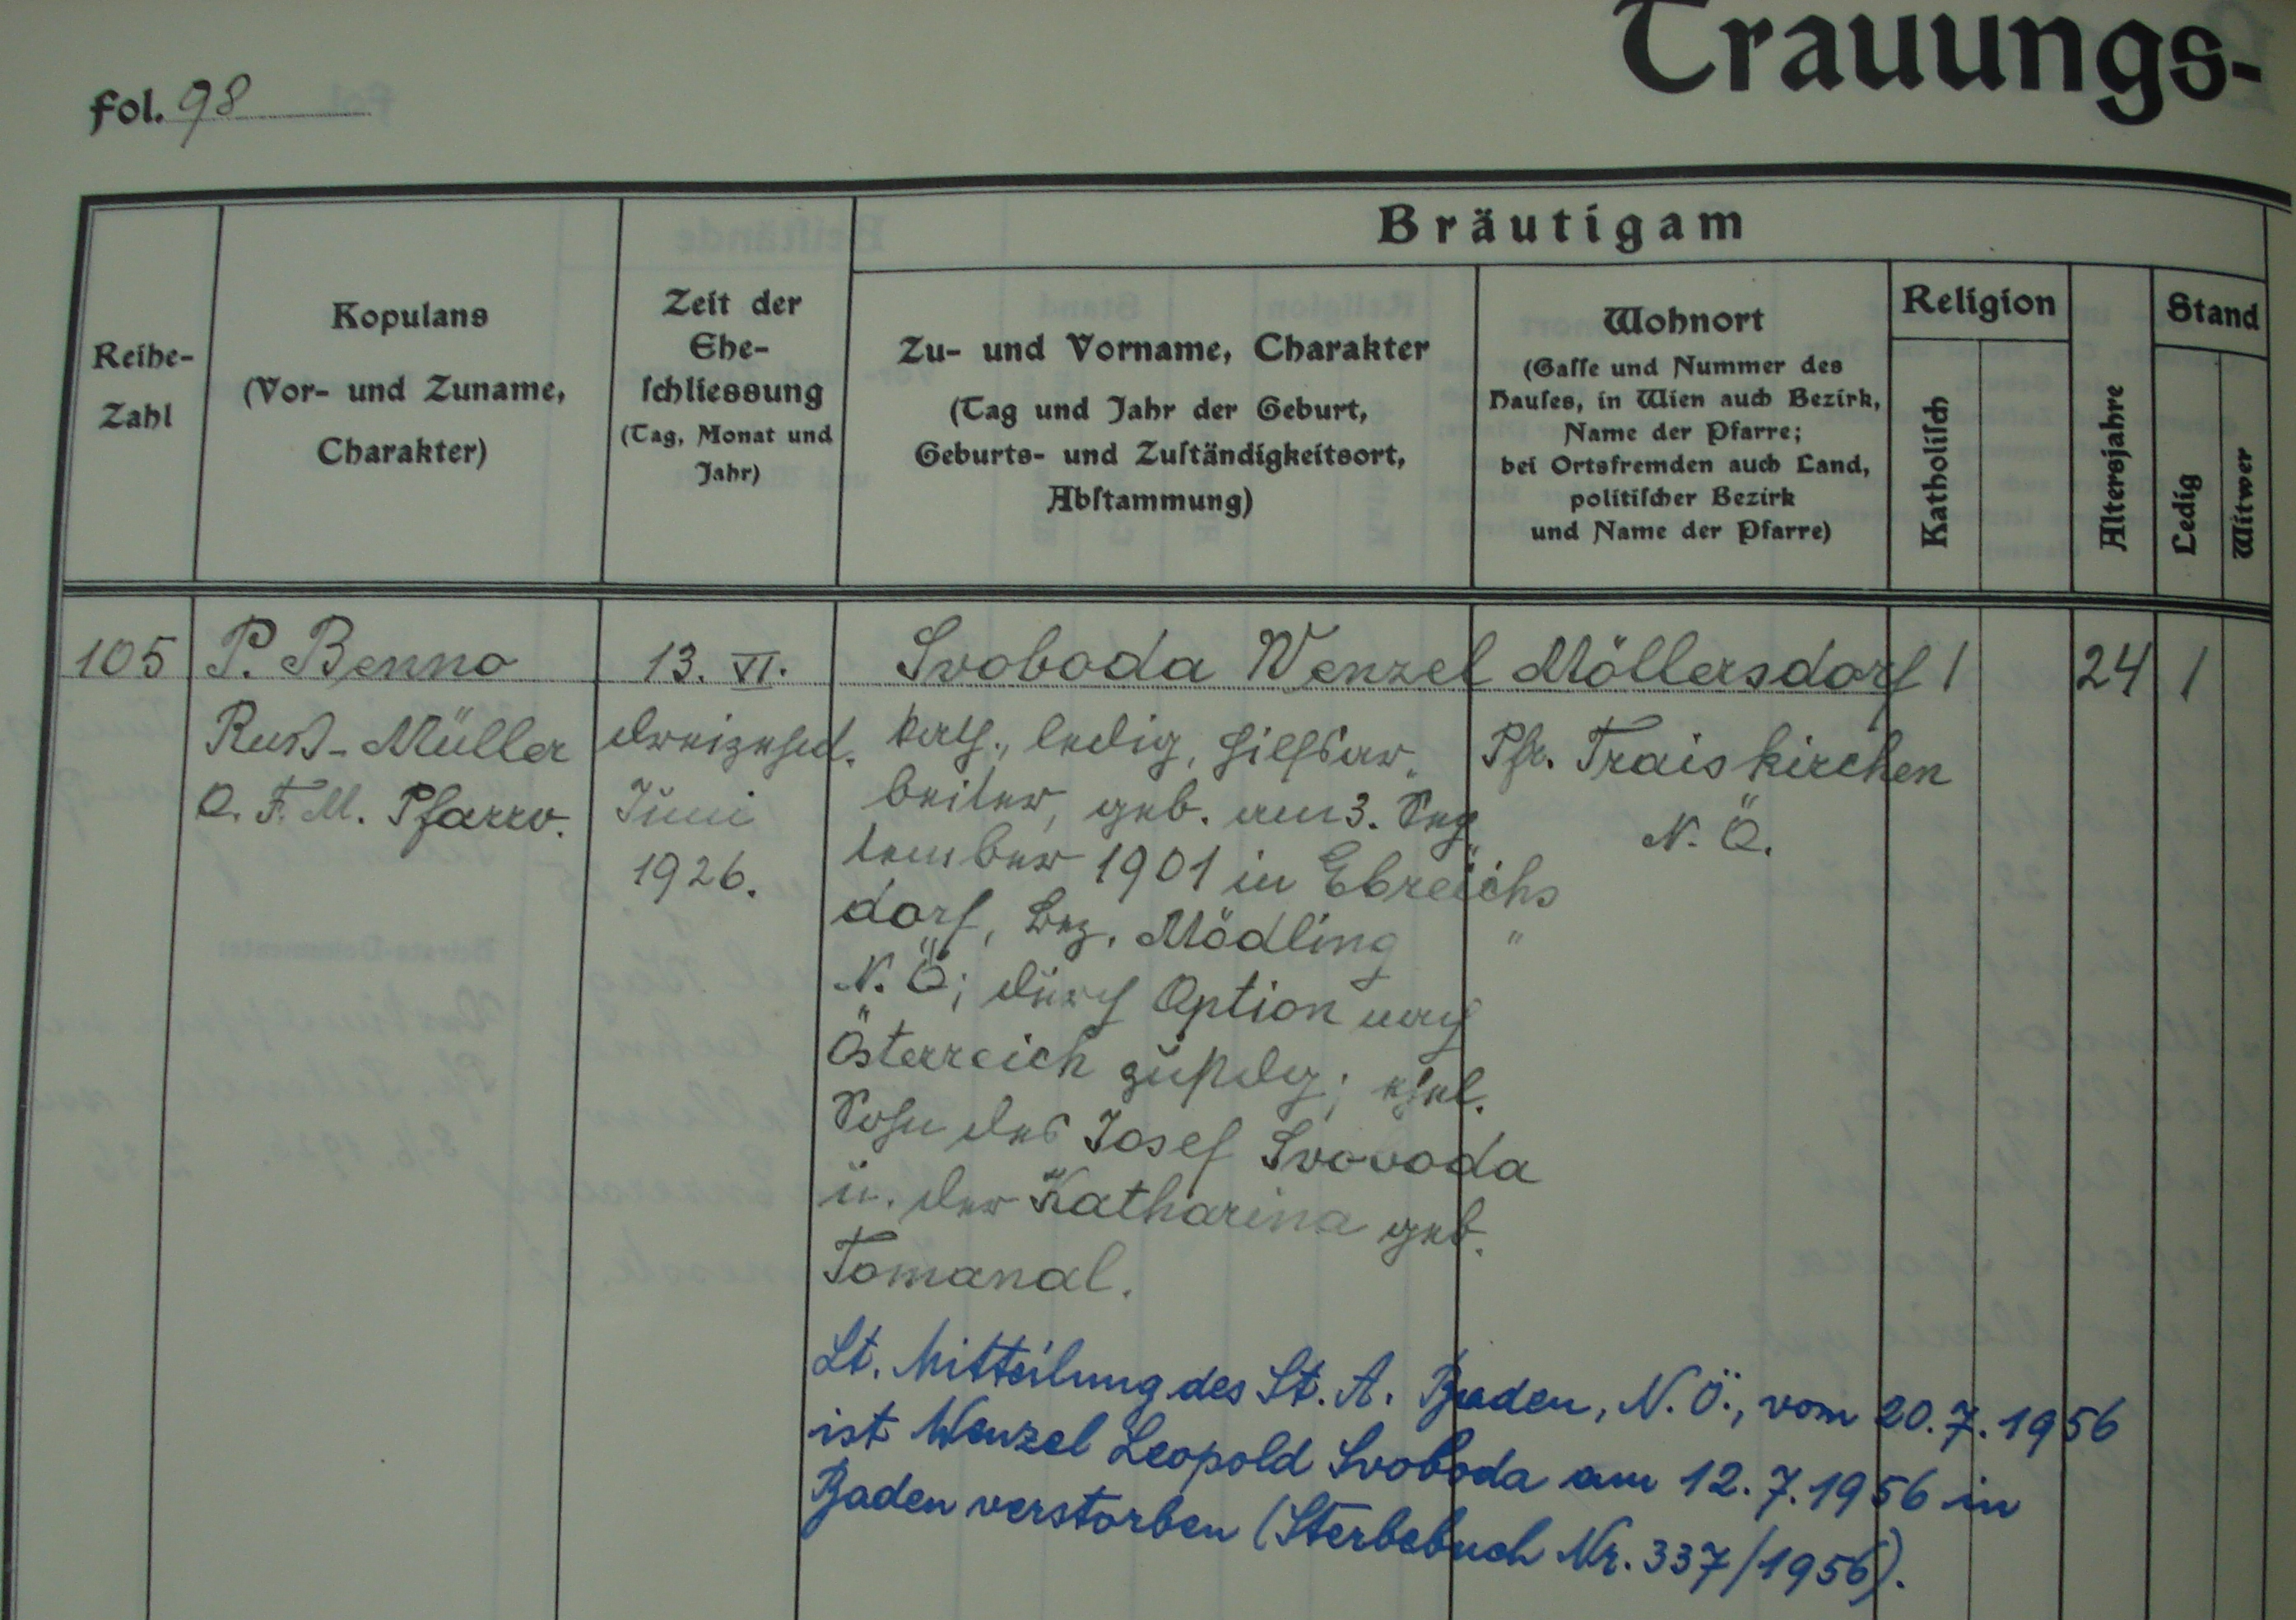 Trauungs-
Fol. 98
Bräutigam
Reihe-
Zahl
Kopulans
(Vor- und Zuname,
Charakter)
Zeit der
Ehe-
schliessung
(Tag, Monat und
Jahr)
Zu- und Vorname, Charakter
(Tag und Jahr der Geburt,
Geburts- und Zuständigkeitsort,
Abstammung)
Wohnort
(Gasse und Nummer des
Hauses, in Wien auch Bezirk,
Name der Pfarre;
bei Ortsfremden auch Land,
politischer Bezirk
und Name der Pfarre)
Religion
Katholisch
Altersjahre
Stand
Ledig
Witwer
105
P. Benno
Ruß-Müller
O. F. M. Pfarrv.
13. VI.
dreizehnt.
Juni
1926.
Svoboda Wenzel
kath., ledig, Hilfsar„
beiter, geb. am 3. Sep„
tember 1901 in Ebreichs
dorf, Bez. Mödling „
N. Ö; durch Option nach
Österreich zustdg; ehel.
Sohn des Josef Svovoda
u. der Katharina geb.
Tomanal.
Möllersdorf
Pfr. Traiskirchen
N. Ö.
1
24
1
Lt. Mitteilung des St. A. Baden, N. Ö., vom 20.7.1956
ist Wenzel Leopold Svoboda am 12.7.1956 in
Baden verstorben (Sterbebuch Nr. 337/1956).